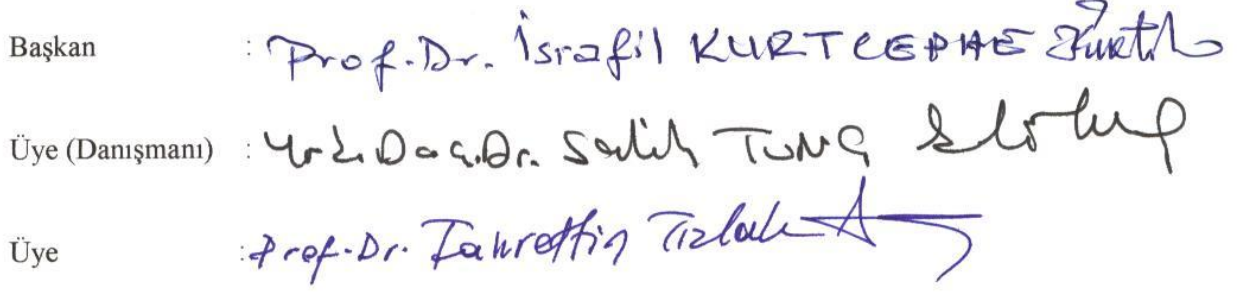 Başkan : Prof. Dr. İsrafil KURTCEPHE
Üye (Danışmanı) : Yrd. Doç. Dr. Salih TUNÇ
Üye : Prof. Dr. Fahrettin Tızlak